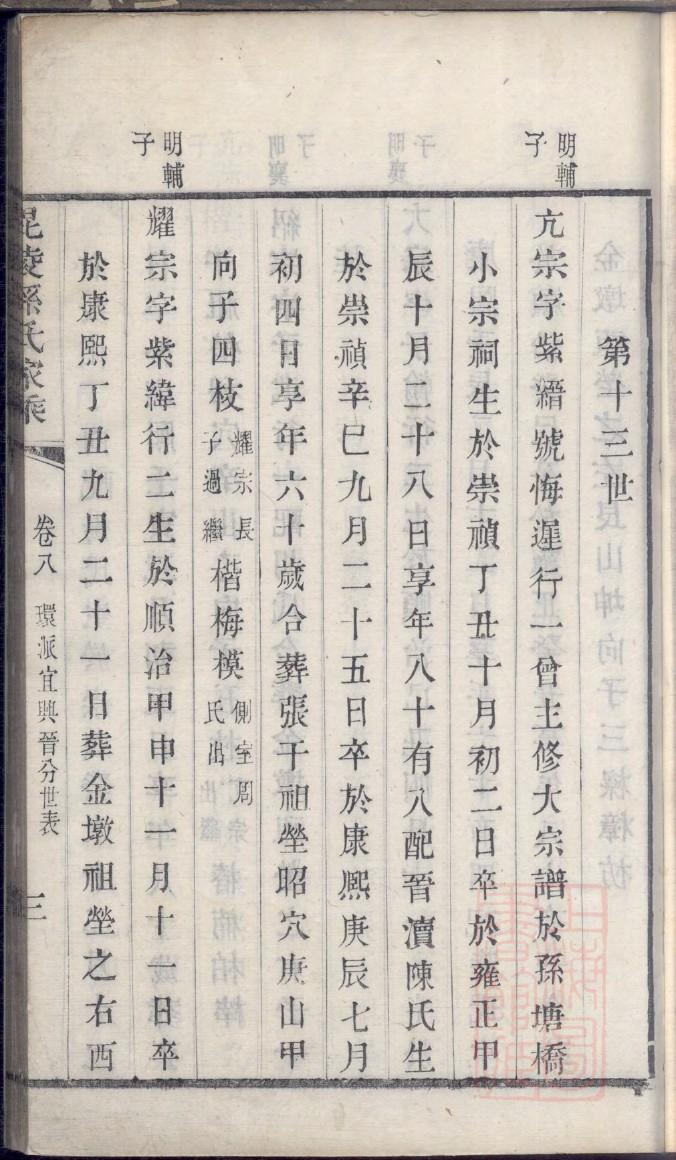 第十三世
明輔
子
亢宗字紫縉號悔遲行一曾主修大宗譜於孫塘橋
小宗祠生於崇禎丁丑十月初二日卒於雍正甲
辰十月二十八日享年八十有八配晉瀆陳氏生
於崇禎辛巳九月二十五日卒於康熙庚辰七月
初四日享年六十歲合葬張干祖塋昭穴庚山甲
向子四枝耀宗長
子過繼楷梅模側室周
氏出
明輔
子
耀宗字紫緯行二生於順治甲申十一月十一日卒
於康熙丁丑九月二十一日葬金墩祖塋之右酉
毘陵孫氏家乘
卷八
環派宜興晉分世表
三